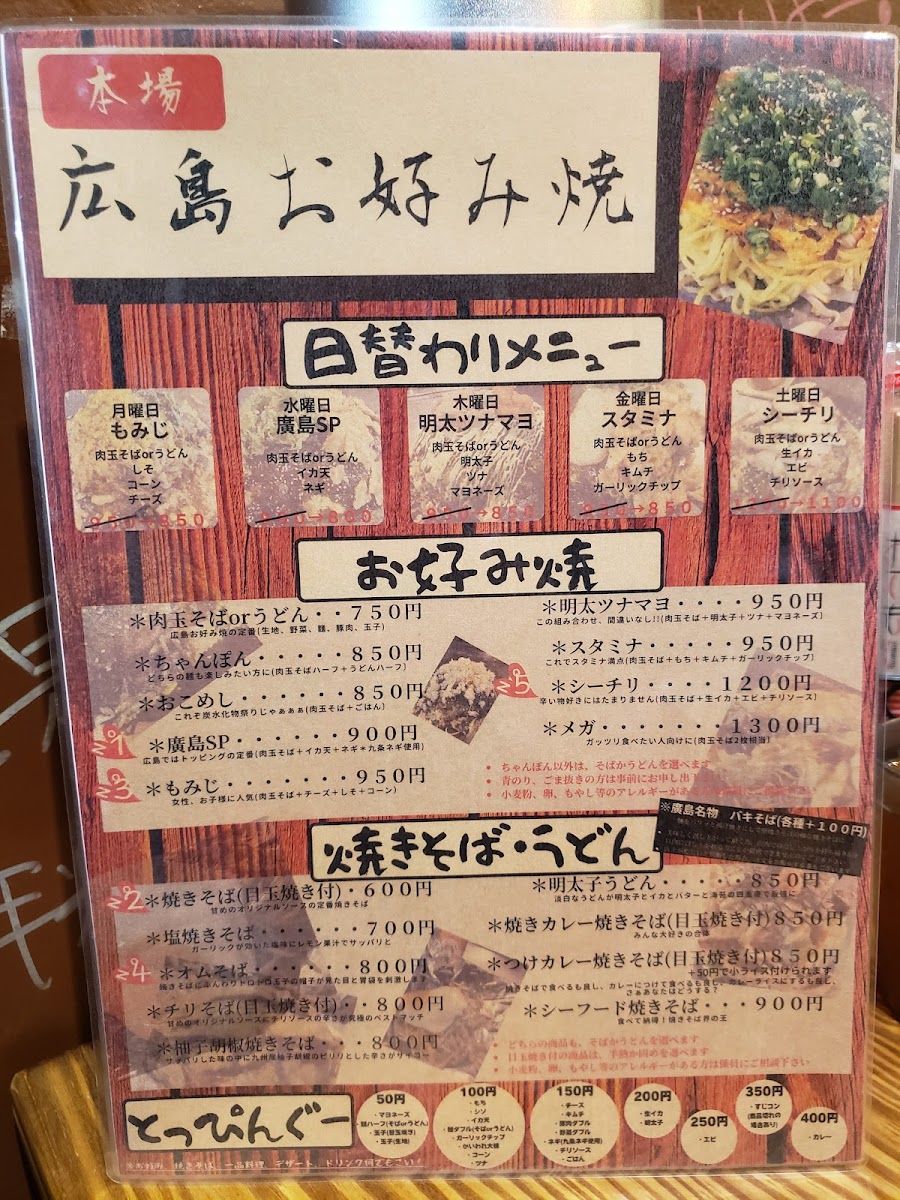 本場
広島お好み焼
日替わりメニュー
月曜日
もみじ
肉玉そばorうどん
しそ
コーン
チーズ
→850
水曜日
廣島SP
肉玉そばorうどん
イカ天
ネギ
木曜日
明太ツナマヨ
肉玉そばorうどん
明太子
ツナ
マヨネーズ
→850
金曜日
スタミナ
肉玉そばorうどん
もち
キムチ
ガーリックチップ
→850
土曜日
シーチリ
肉玉そばorうどん
生イカ
エビ
チリソース
→1100
お好み焼
＊肉玉そばorうどん・・750円
広島お好み焼の定番(生地、野菜、麺、豚肉、玉子)
＊ちゃんぽん・・・・・850円
どちらの麺も楽しみたい方に(肉玉そばハーフ＋うどんハーフ)
＊おこめし・・・・・・850円
これぞ炭水化物祭りじゃぁぁぁ(肉玉そば＋ごはん)
№1
＊廣島SP・・・・・・900円
広島ではトッピングの定番(肉玉そば＋イカ天＋ネギ＊九条ネギ使用)
№3
＊もみじ・・・・・・・950円
女性、お子様に人気(肉玉そば＋チーズ＋しそ＋コーン)
＊明太ツナマヨ・・・・950円
この組み合わせ、間違いなし!!(肉玉そば＋明太子＋ツナ＋マヨネーズ)
＊スタミナ・・・・・950円
これでスタミナ満点(肉玉そば＋もち＋キムチ＋ガーリックチップ)
№5
＊シーチリ・・・・1200円
辛い物好きにはたまりません(肉玉そば＋生イカ＋エビ＋チリソース)
＊メガ・・・・・・・1300円
ガッツリ食べたい人向けに(肉玉そば2枚相当)
• ちゃんぽん以外は、そばかうどんを選べます
• 青のり、ごま抜きの方は事前にお申し出下
• 小麦粉、卵、もやし等のアレルギーがある
※廣島名物　バキそば(各種＋100円)
焼きそば・うどん
№2
＊焼きそば(目玉焼き付)・600円
甘めのオリジナルソースの定番焼きそば
＊塩焼きそば・・・・・700円
ガーリックが効いた塩味にレモン果汁でサッパリと
№4
＊オムそば・・・・・・800円
焼きそばにふんわりトロトロ玉子の帽子が見た目と胃袋を刺激します
＊チリそば(目玉焼き付)・・800円
甘めのオリジナルソースにチリソースの辛さが究極のベストマッチ
＊柚子胡椒焼きそば・・・800円
サッパリした味の中に九州産柚子胡椒のピリリとした辛さがサイコー
＊明太子うどん・・・・850円
淡白なうどんが明太子とイカとバターと海苔の四重奏で
＊焼きカレー焼きそば(目玉焼き付)850円
みんな大好きの合体
＊つけカレー焼きそば(目玉焼き付)850円
＋50円で小ライス付けられます
焼きそばで食べるも良し、カレーにつけて食べるも良し、カレーライスにするも良し、
さぁあなたはどうする？
＊シーフード焼きそば・・・900円
食べて納得！焼きそば界の王
• どちらの商品も、そばかうどんを選べます
• 目玉焼き付の商品は、半熟か固めを選べます
• 小麦粉、卵、もやし等のアレルギーがある方は係員にご相談下さい
とっぴんぐー
50円
・マヨネーズ
・麺ハーフ(そばorうどん)
・玉子(目玉焼き)
・玉子(生地)
100円
・もち
・シソ
・イカ天
・麺ダブル(そばorうどん)
・ガーリックチップ
・かいわれ大根
・コーン
・ツナ
150円
・チーズ
・キムチ
・豚肉ダブル
・野菜ダブル
・ネギ(九条ネギ使用)
・チリソース
・ごはん
200円
・生イカ
・明太子
250円
・エビ
350円
・すじコン
(商品切れの
場合あり)
400円
・カレー
※お好み　焼きそば　一品料理　デザート　ドリンク何でもこい！